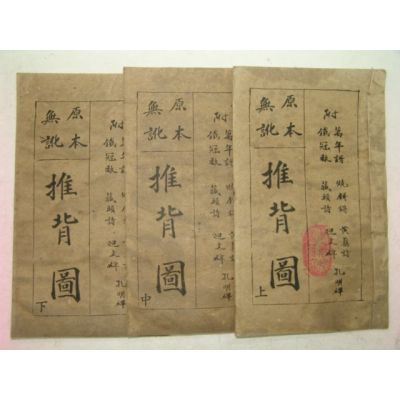 附
萬年詩 燒餅歌 黃蘗詩 孔明碑
鐵冠數 藏頭詩
原本
無訛
推背圖
上
附
鐵冠數 藏頭詩
孔明碑
原本
無訛
推背圖
中
附
鐵冠數 藏頭詩
孔明碑
原本
無訛
推背圖
下